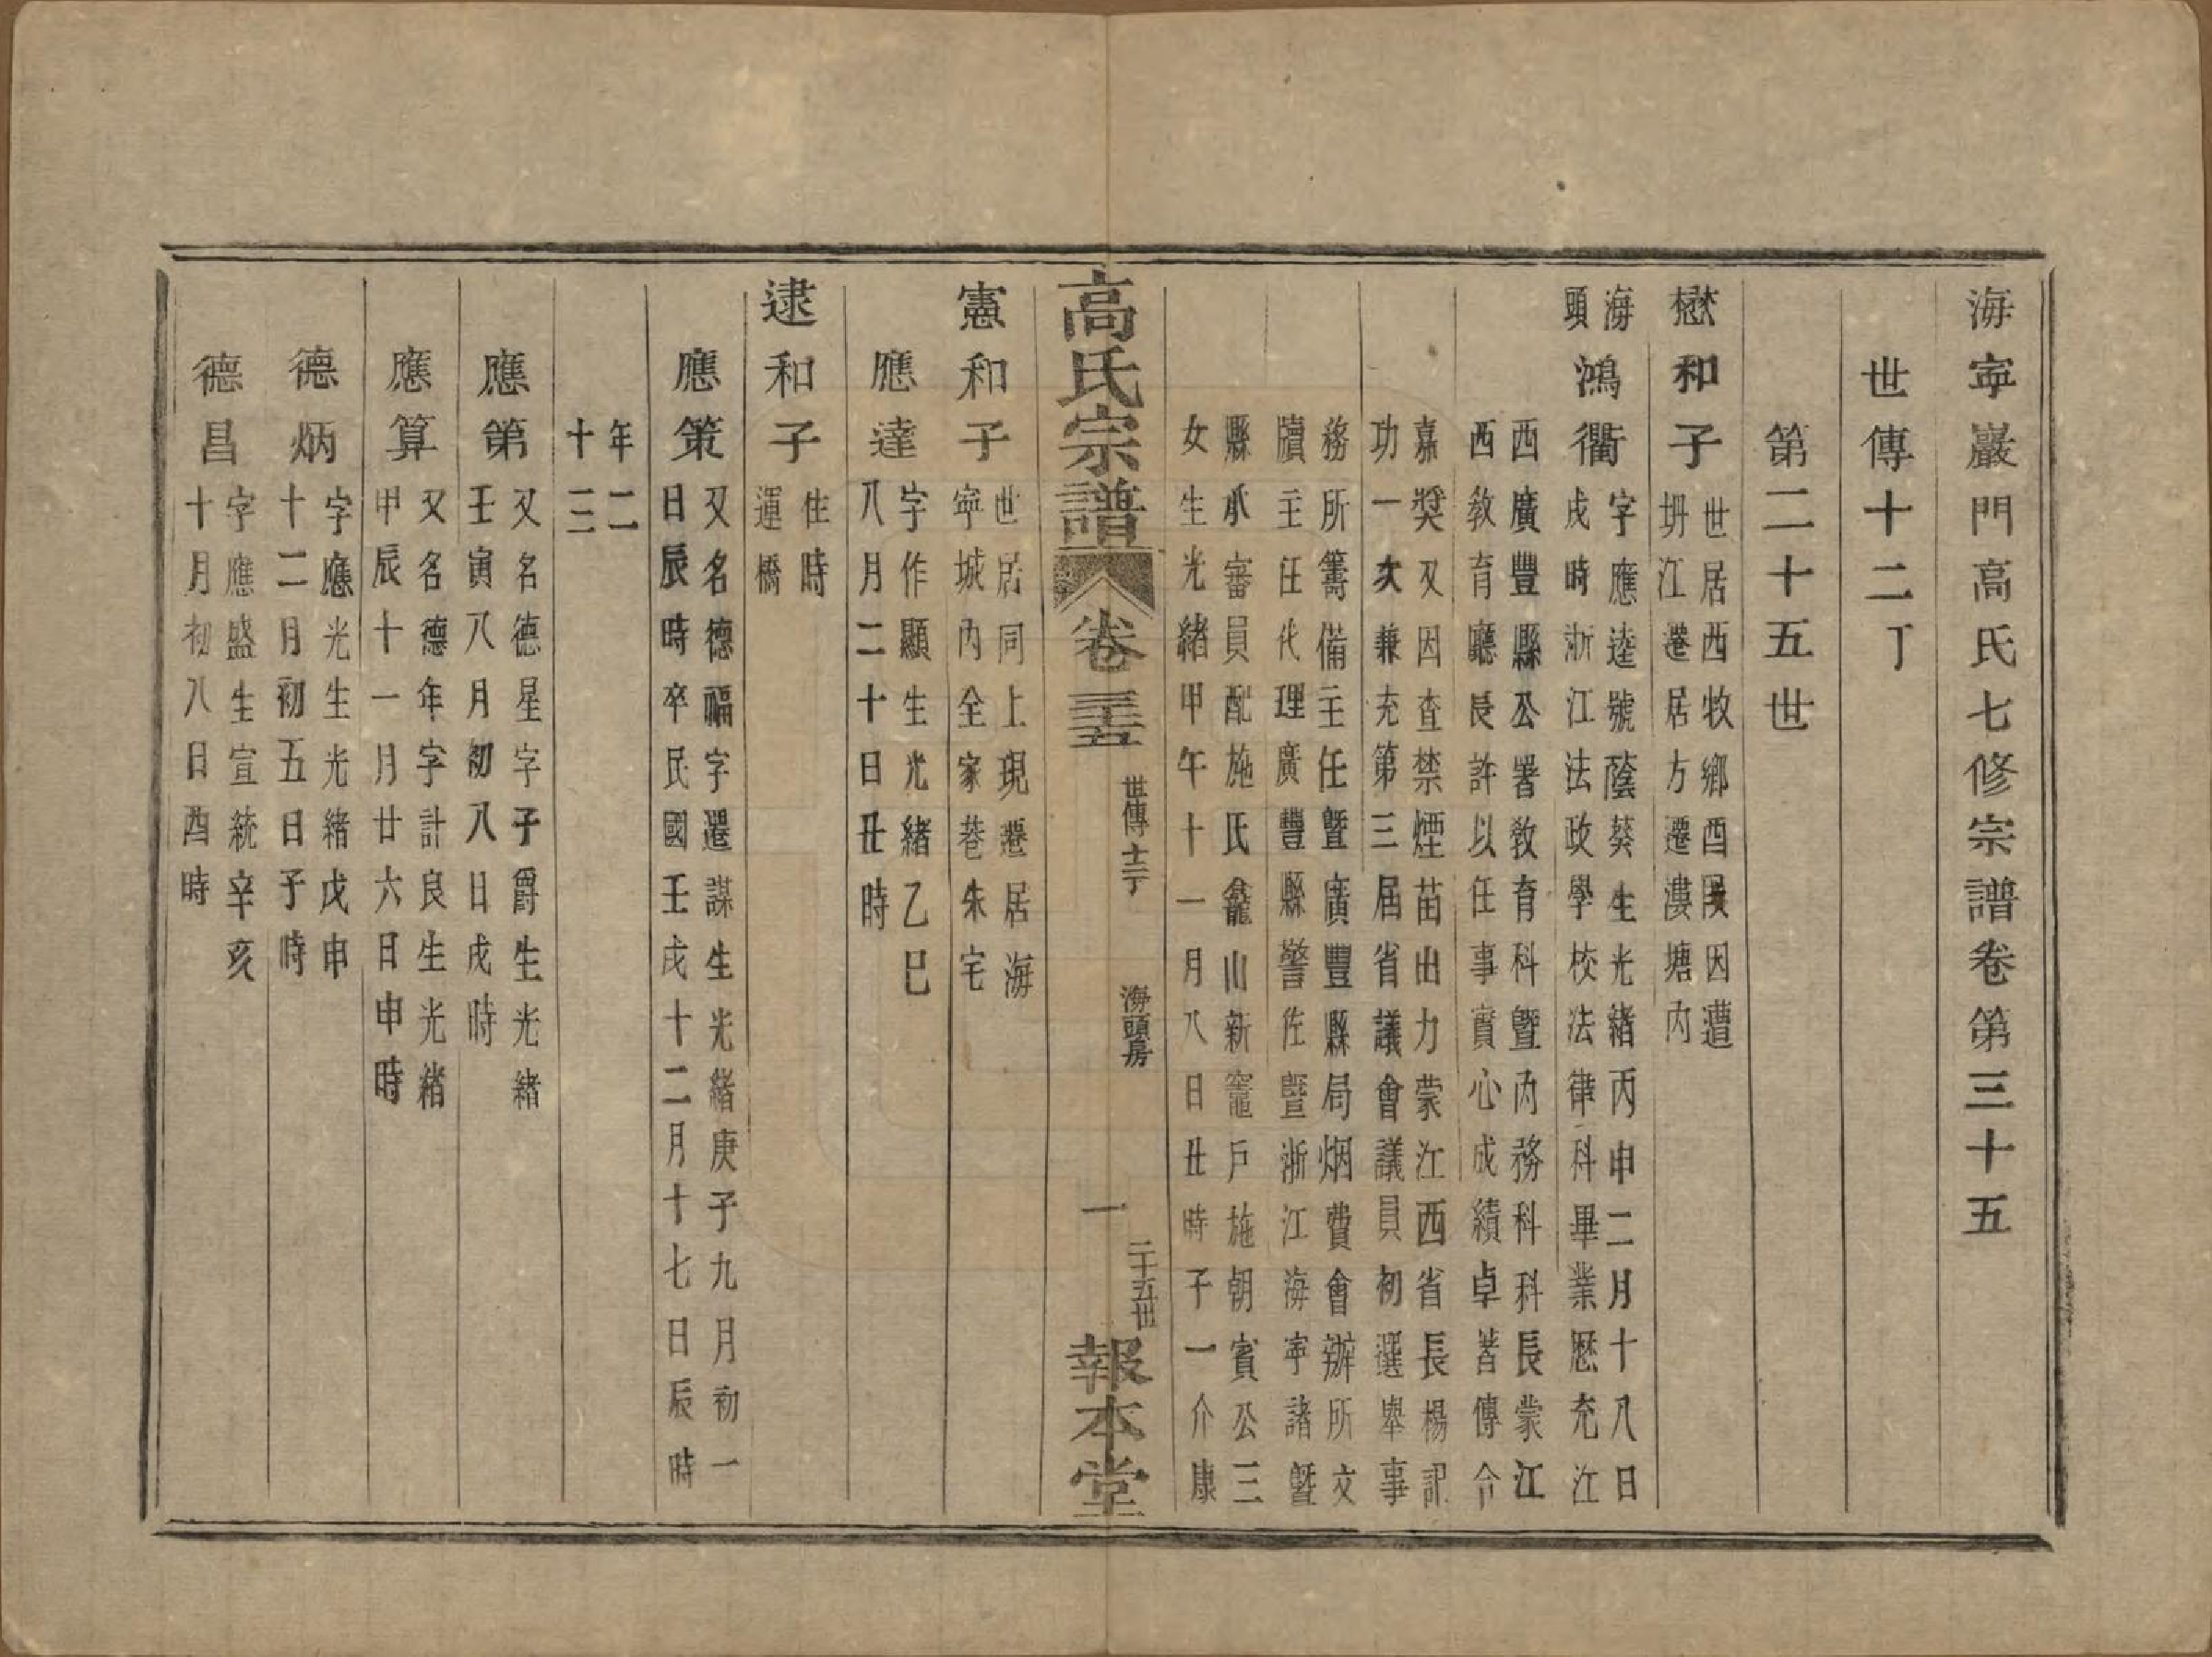 海寧巖門高氏七修宗譜卷第三十五
世傳十二丁
第二十五世
懋和子
世居西牧鄉酉㕑因遭
坍江遷居方遷漊塘內
海頭
鴻衢
字應逵號蔭葵生光緒丙申二月十八日
戌時浙江法政學校法律科畢業歷充江
西廣豐縣公署教育科暨內務科科長蒙江
西教育廳長許以任事實心成績卓著傳令
嘉奬又因查禁煙苗出力蒙江西省長楊記
功一次兼充第三屆省議會議員初選舉事
務所籌備主任暨廣豐縣局烟費會辦所文
牘主任代理廣豐縣警佐暨浙江海寧諸暨
縣承審員配施氏龕山新竈戶施朝賓公三
女生光緒甲午十一月八日丑時子一介康
高氏宗譜
卷三十五
世傳十二丁
海頭房
一
二十五世
報本堂
憲和子
世居同上現遷居海
寧城內全家巷朱宅
應達
字作顯生光緒乙巳
八月二十日丑時
逮和子
住時
運橋
應策
又名德福字選謀生光緒庚子九月初一
日辰時卒民國壬戌十二月十七日辰時
年二
十三
應第
又名德星字子爵生光緒
壬寅八月初八日戌時
應算
又名德年字計良生光緒
甲辰十一月廿六日申時
德炳
字應光生光緒戊申
十二月初五日子時
德昌
字應盛生宣統辛亥
十月初八日酉時